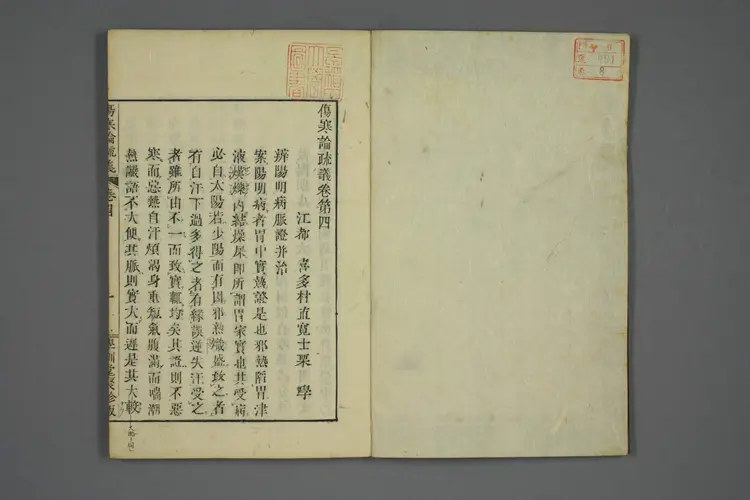 傷寒論疏義卷第四
江都 喜多村直寬士栗 學
辨陽明病脈證并治
案陽明病者胃中實熱證是也邪熱陷胃津
液熯爍内結燥屎卽所謂胃家實也其受病
必自太陽若少陽而有因邪熱熾盛致之者
有自汗下過多得之者有緣誤逆失汗受之
者雖所由不一而致實輒均矣其證則不惡
寒而惡熱自汗煩渴身重短氣腹滿而喘潮
熱讝語不大便其脈則實大而遲是其大較
傷寒論疏義 卷四
一